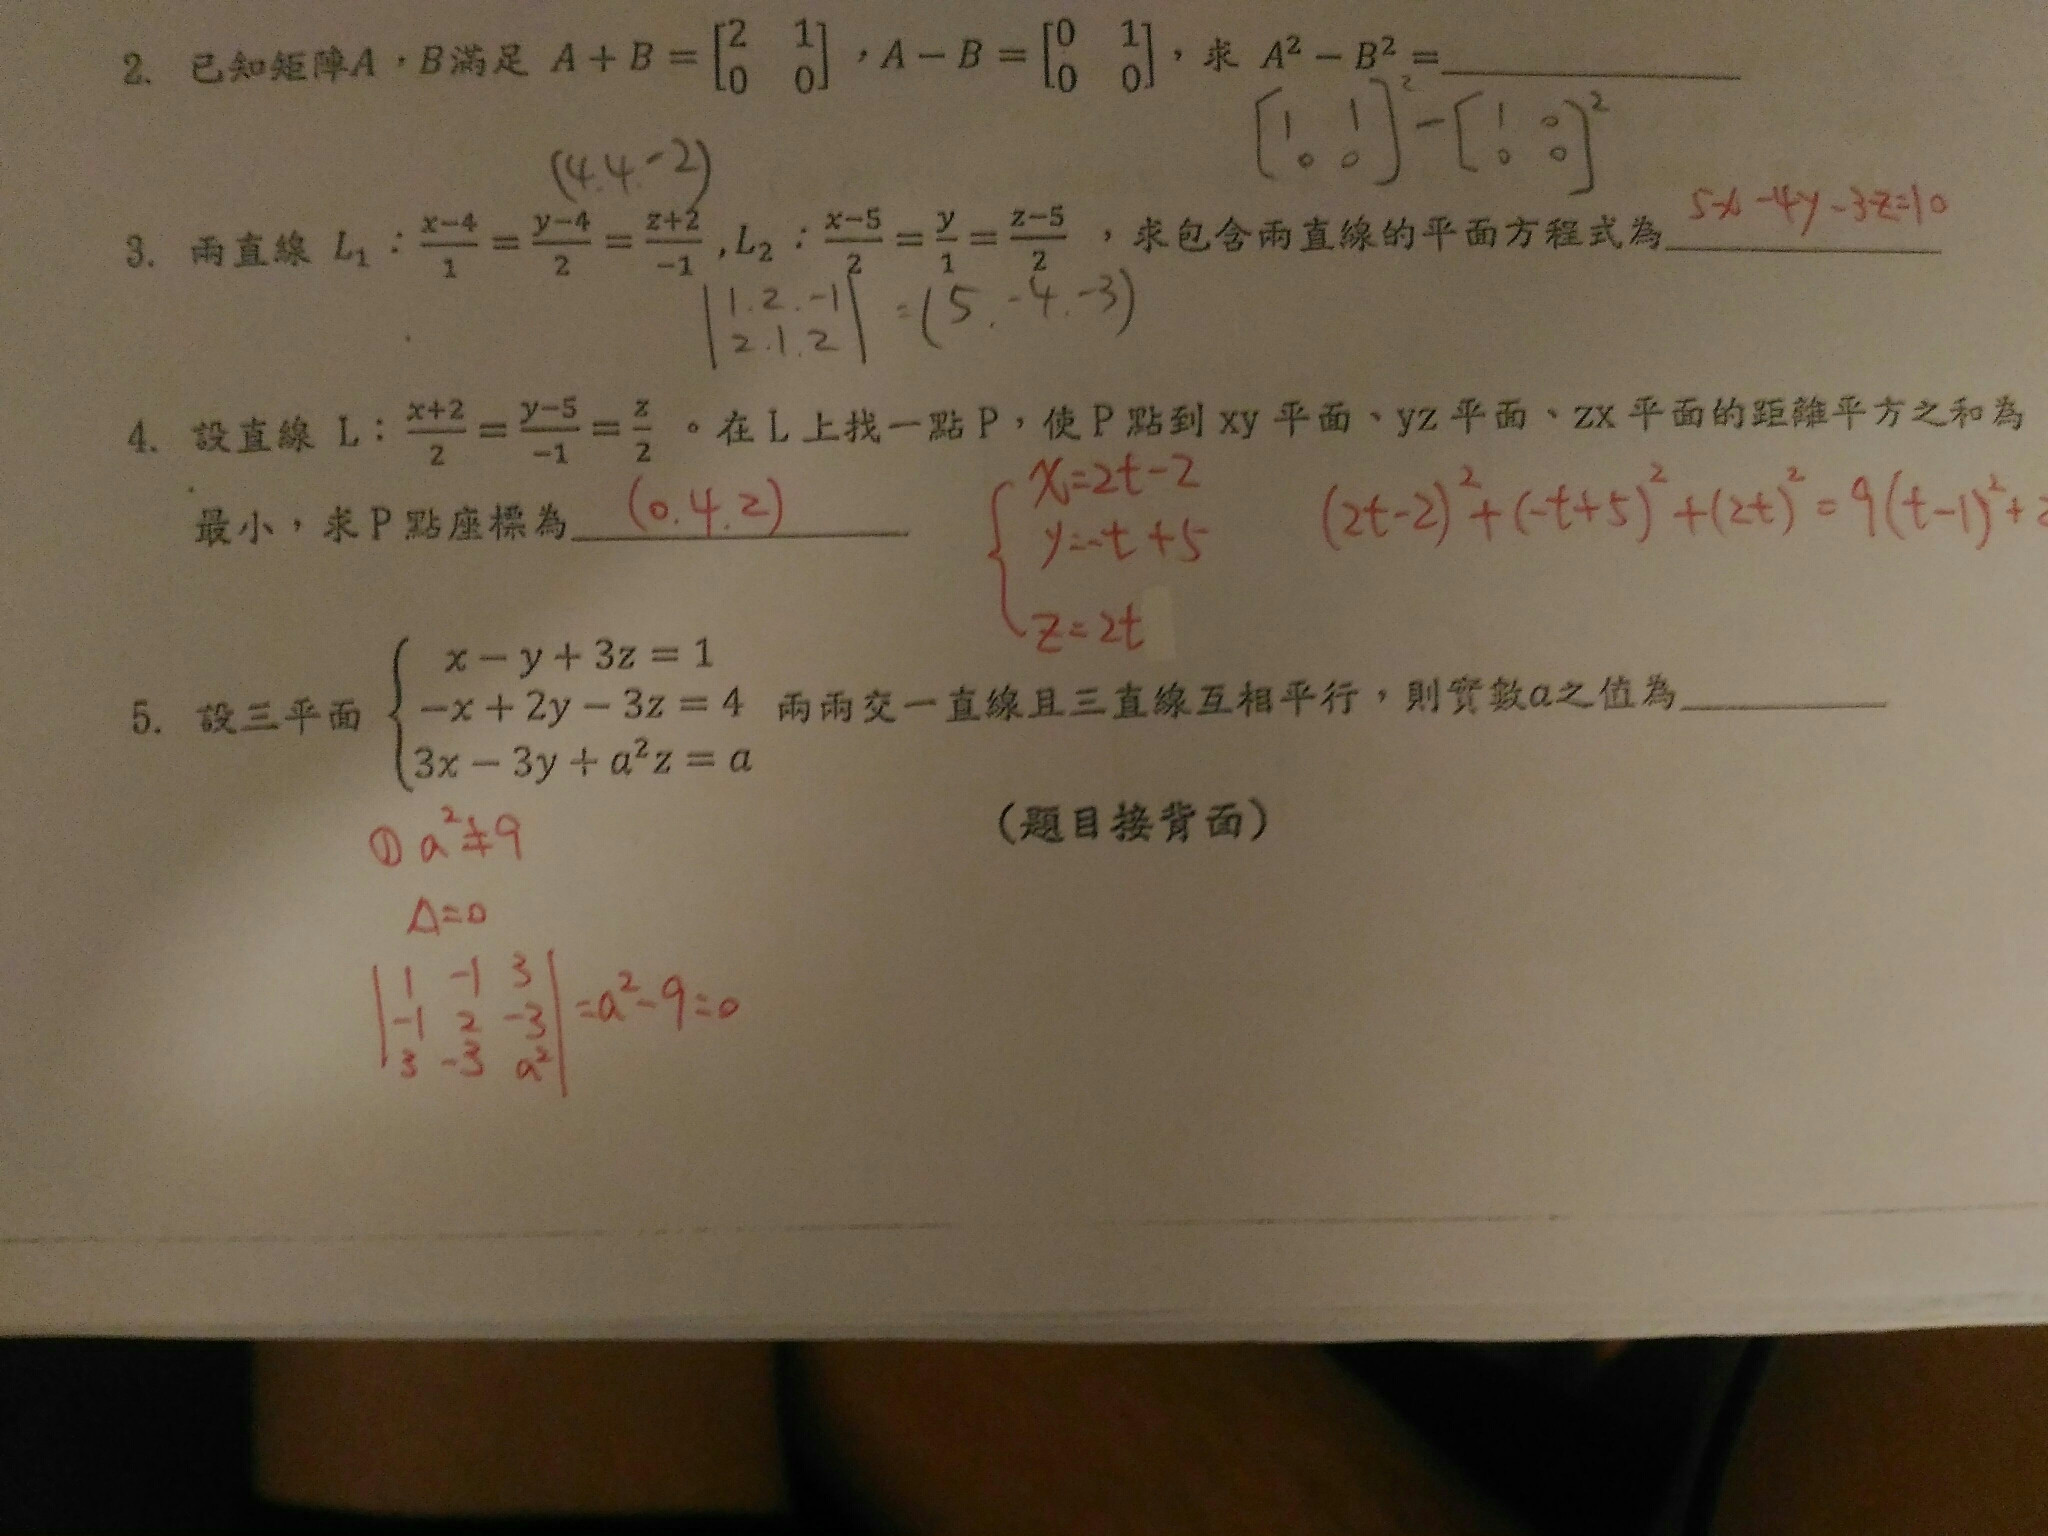 2. 已知矩陣A，B滿足 A + B = [2 1; 0 0]，A − B = [0 1; 0 0]，求 A² − B² = ________
[1 1; 0 0]² − [1 0; 0 0]²
(4.4.-2)
3. 兩直線 L₁：(x−4)/1 = (y−4)/2 = (z+2)/−1 , L₂：(x−5)/2 = y/1 = (z−5)/2 ，求包含兩直線的平面方程式為 5x-4y-3z=10
|1.2.-1; 2.1.2| = (5.-4.-3)
4. 設直線 L：(x+2)/2 = (y−5)/−1 = z/2 。在 L 上找一點 P，使 P 點到 xy 平面、yz 平面、zx 平面的距離平方之和為
最小，求 P 點座標為 (0.4.2)
{ x=2t-2
y=-t+5
z=2t
(2t-2)²+(-t+5)²+(2t)²=9(t-1)²+2
5. 設三平面 { x − y + 3z = 1
−x + 2y − 3z = 4 兩兩交一直線且三直線互相平行，則實數a之值為________
3x − 3y + a²z = a
（題目接背面）
① a²≠9
Δ=0
|1 -1 3; -1 2 -3; 3 -3 a²| = a²-9=0